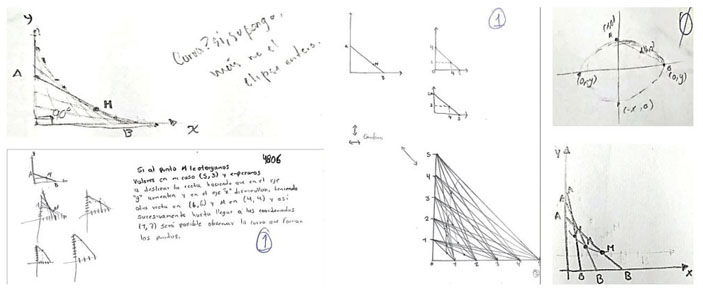 y
A
M
90°
B
x
Curva? si, supongo,
más no el
elipse entero.
4806
Si al punto M le otorgamos
valores en mi caso (5,3) y empezamos
a deslizar la recta haciendo que en el eje
"y" aumenten y en el eje "x" disminuyan, teniendo
otra recta en (6,6) y M en (4,4) y así
sucesivamente hasta llegar a las coordenadas
(7,7) será posible observar la curva que forman
los puntos.
1
1
A
M
B
4
2
4
5
4
3
2
1
0
1
2
3
4
5
A
B
(0,y)
(0,y)
(-x,0)
y
A
A
A
M
M
M
B
B
B
x